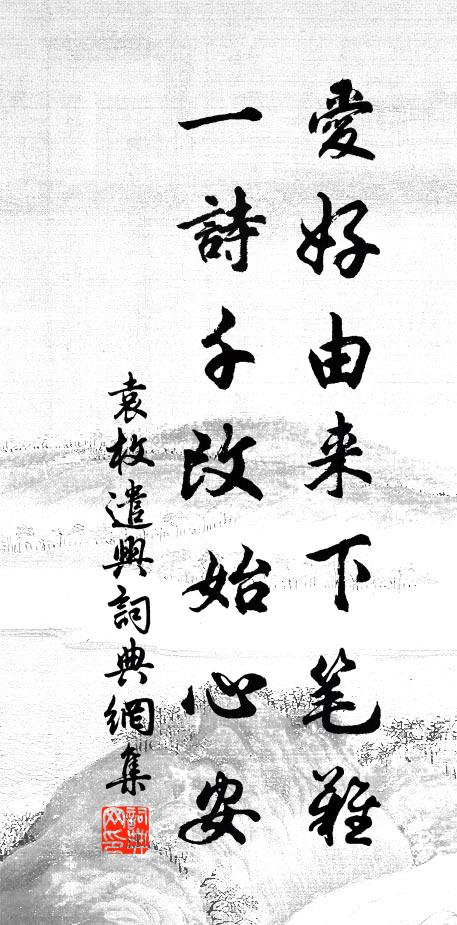 愛好由来下笔難
一詩千改始心安
袁枚遣興詞典網集
詞典网印